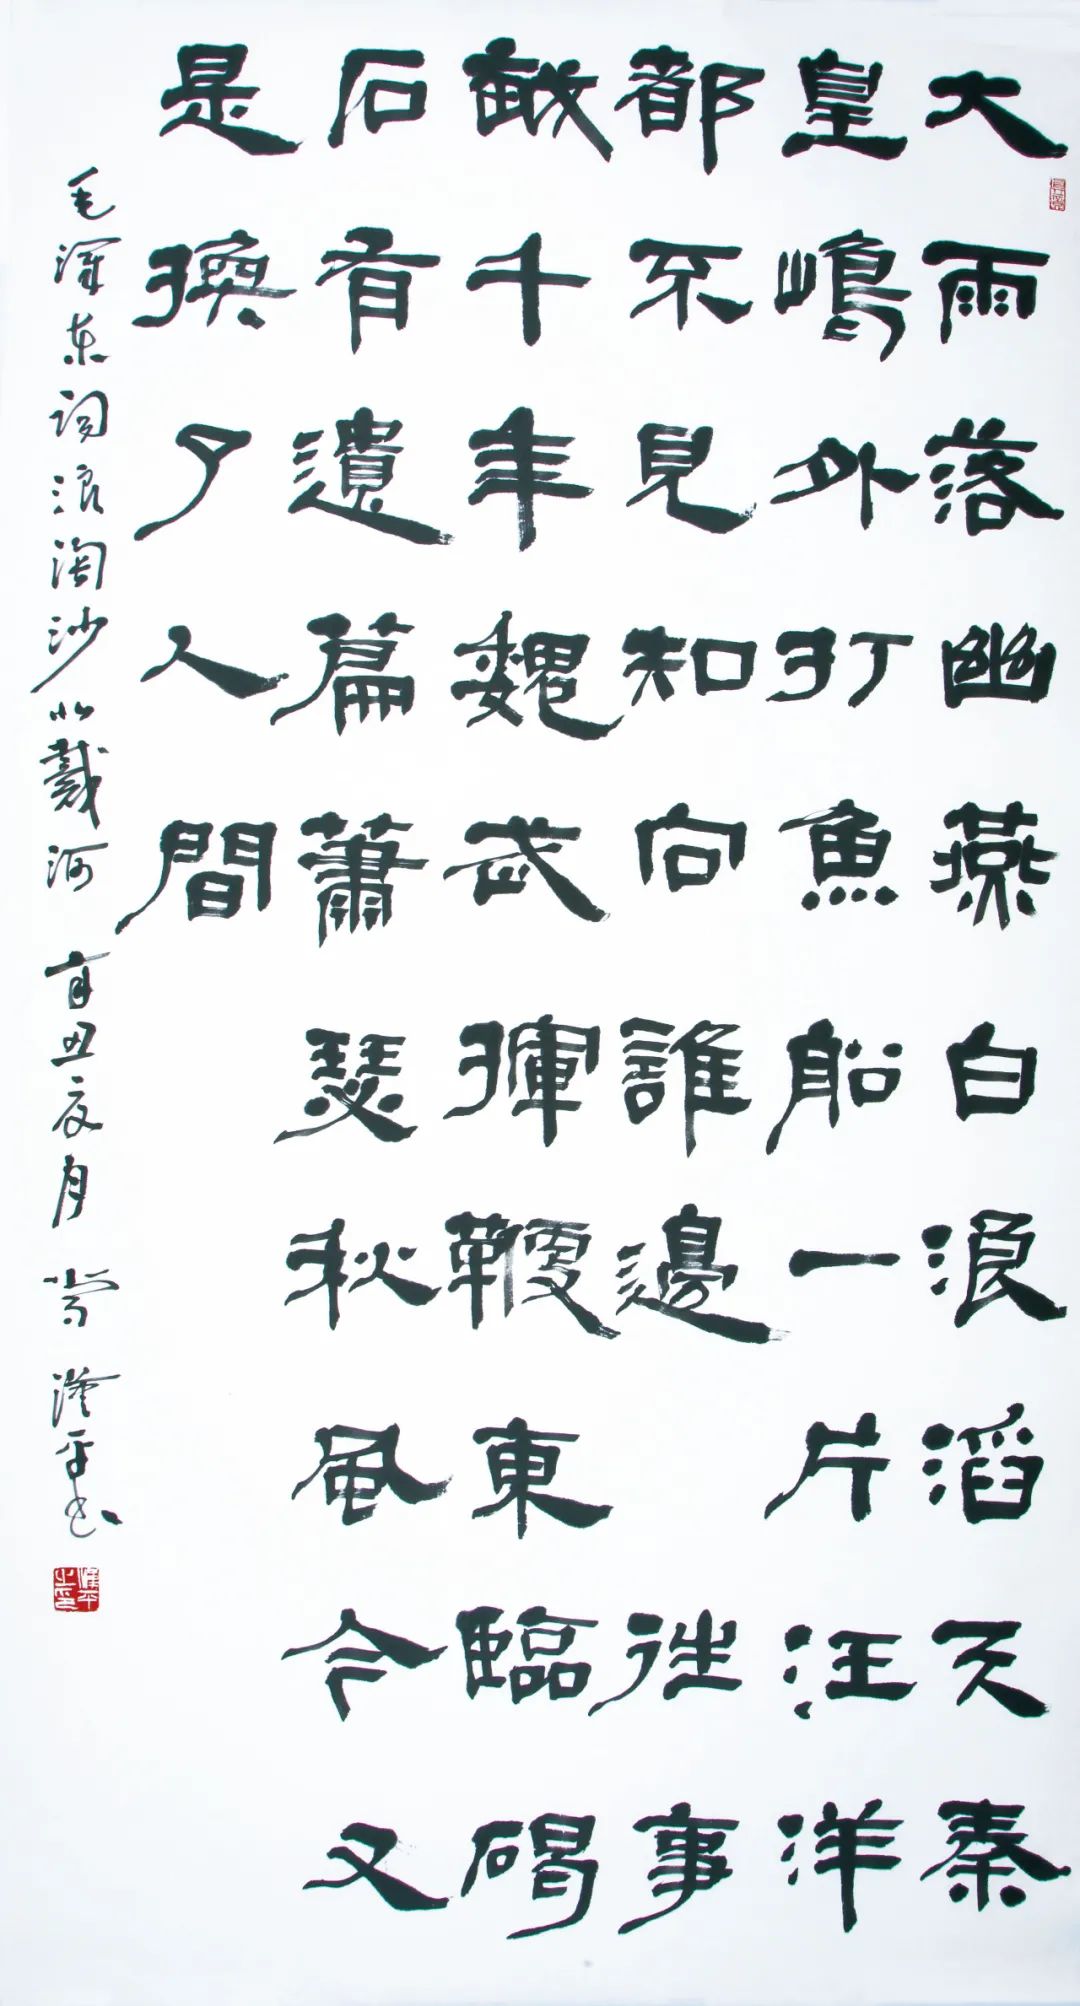 大雨落幽燕白浪滔天秦
皇嶋外打魚船一片汪洋
都不見知向誰邊往事
越千年魏武揮鞭東臨碣
石有遺篇蕭瑟秋風今又
是換了人間
毛澤東詞浪淘沙北戴河 辛丑夏月 漢平书
漢平之印